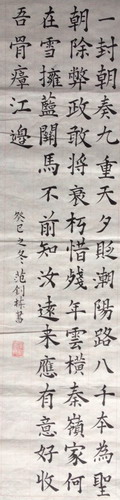 一封朝奏九重天夕貶朝陽路八千本為聖
朝除弊政敢將衰朽惜殘年雲橫秦嶺家何
在雪擁藍關馬不前知汝遠來應有意好收
吾骨瘴江邊
癸巳之冬范